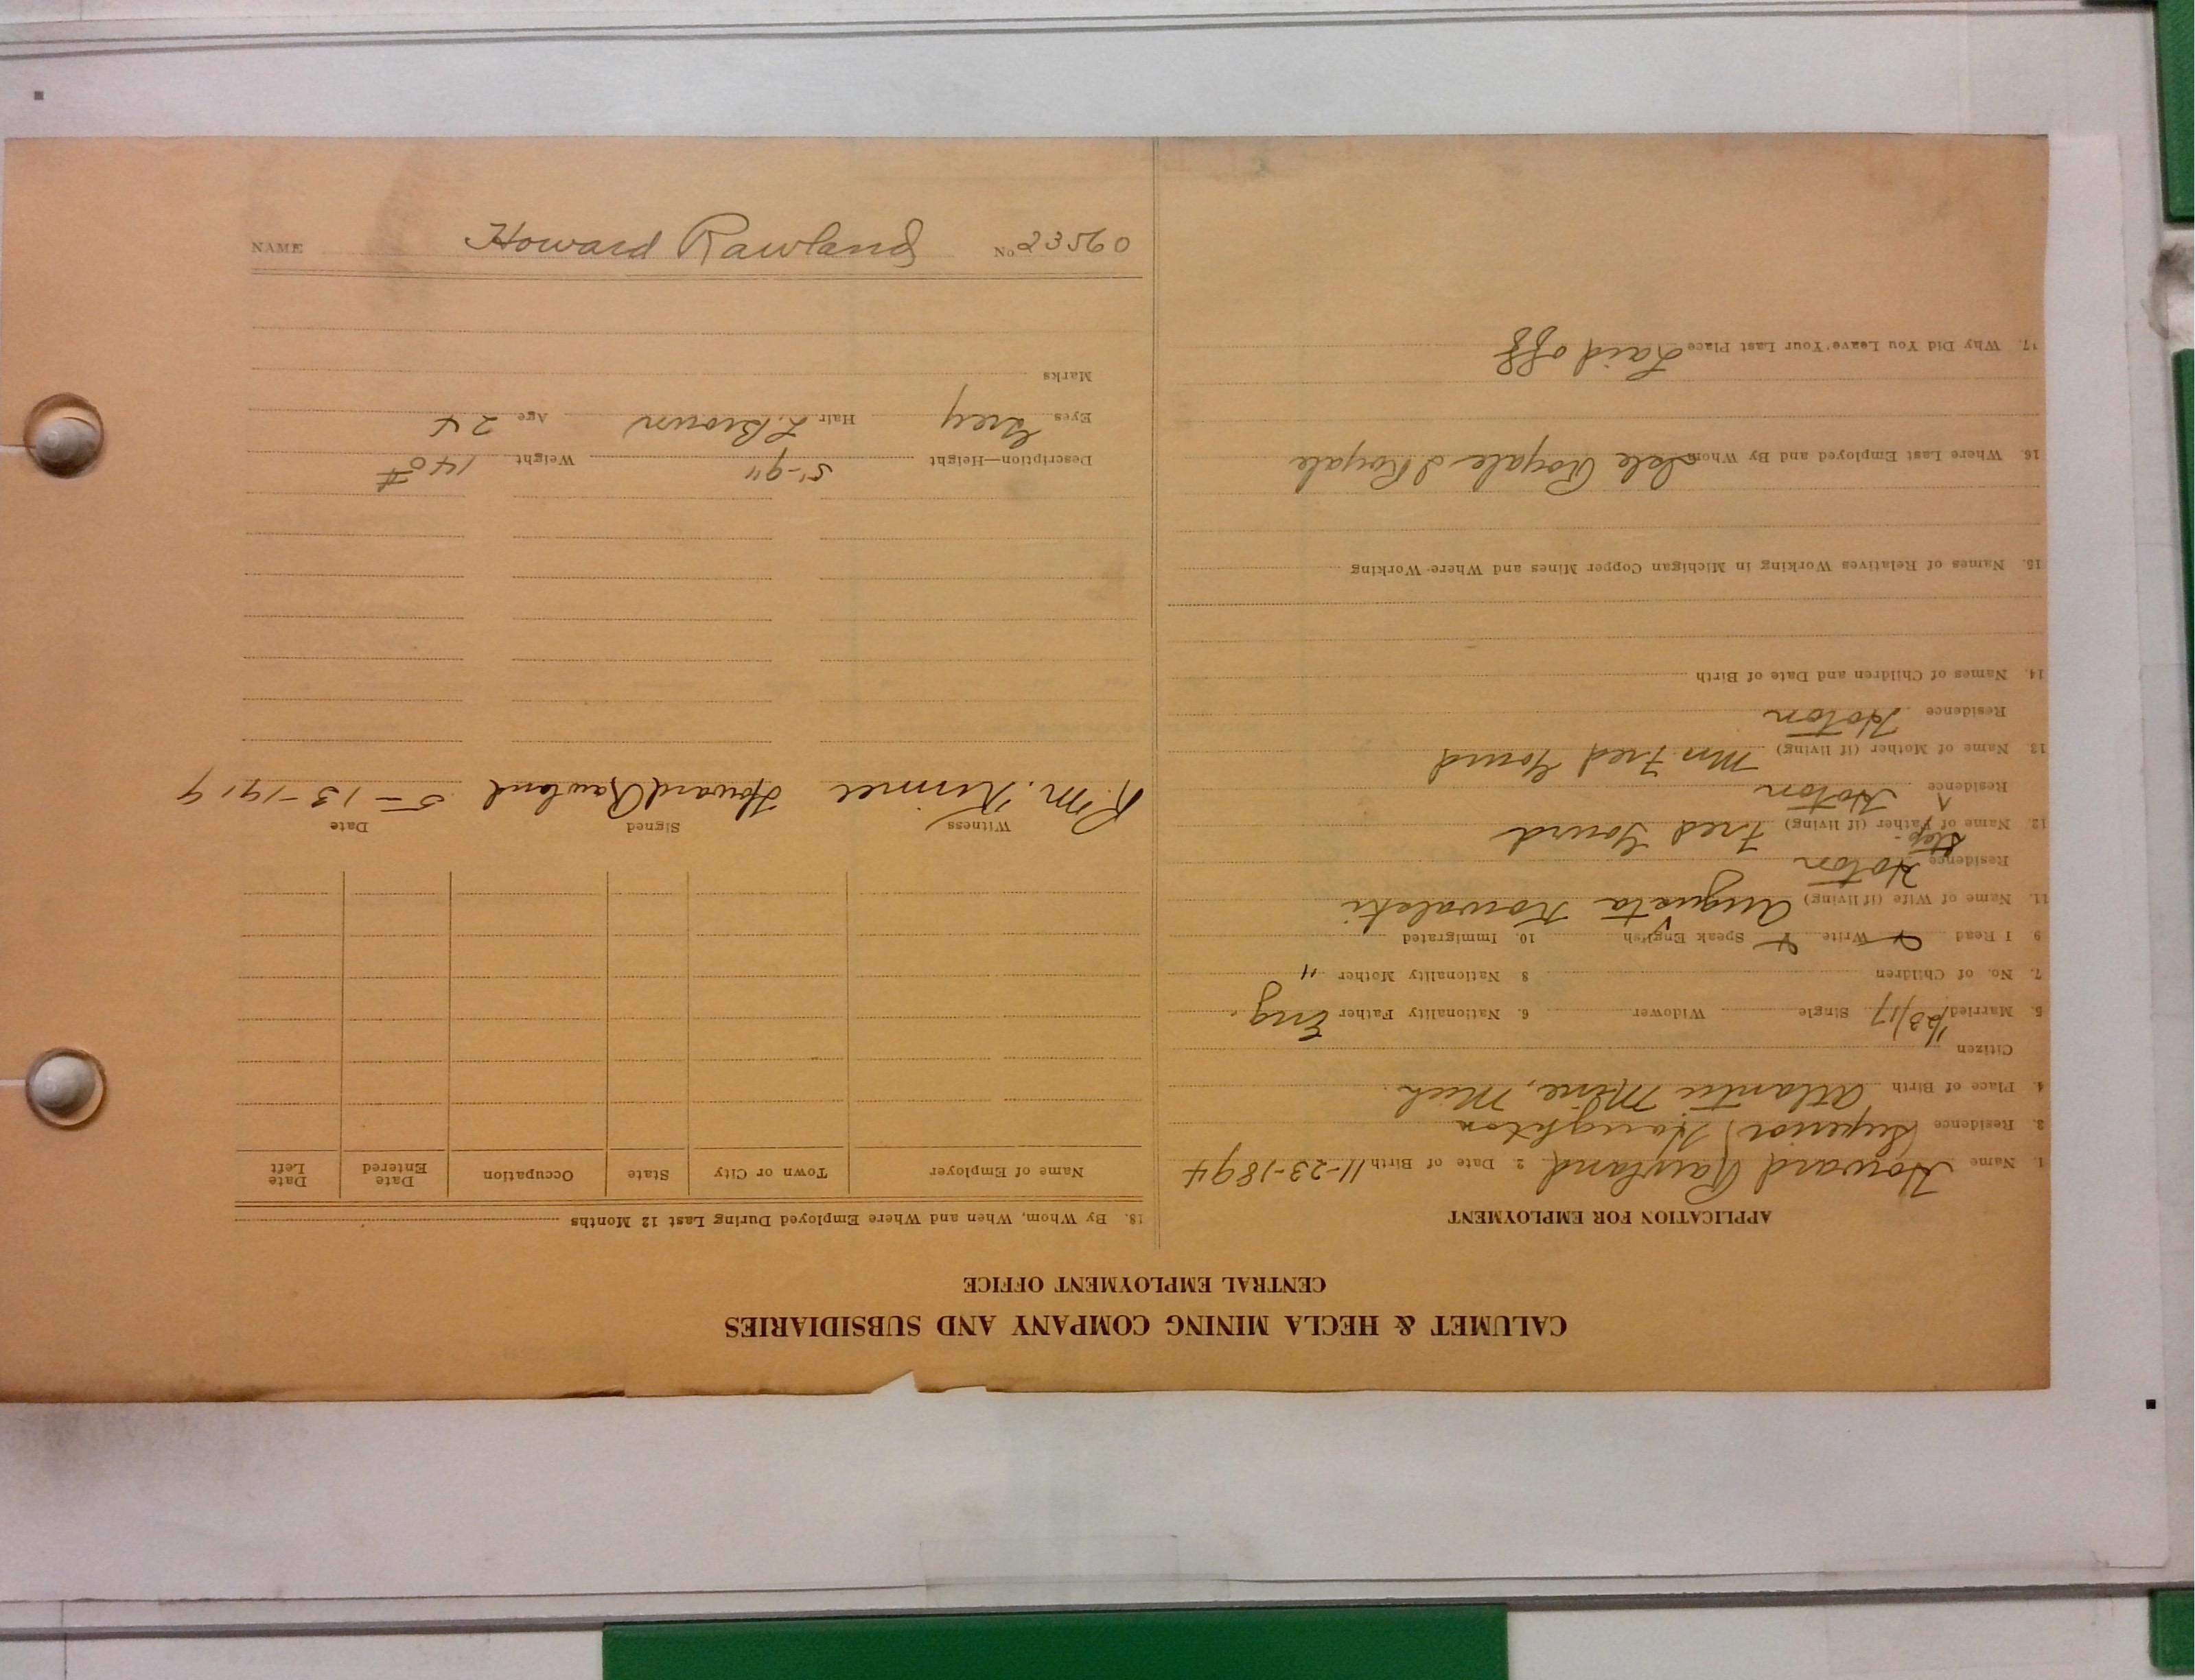 CALUMET & HECLA MINING COMPANY AND SUBSIDIARIES
CENTRAL EMPLOYMENT OFFICE
APPLICATION FOR EMPLOYMENT
1. Name Howard Rawland 2. Date of Birth 11-23-1894
3. Residence (Superior) Houghton
4. Place of Birth Atlantic Mine, Mich.
Citizen
5. Married 1/23/17 Single Widower 6. Nationality Father Eng.
7. No. of Children 8 Nationality Mother "
9 I Read Write Speak English 10. Immigrated
11. Name of Wife (if living) Augusta Kowalski
Residence Hoton
12. Name of Step- Father (if living) Fred Gourd
Residence Hoton
13 Name of Mother (if living) Mrs Fred Gourd
Residence Hoton
14. Names of Children and Date of Birth
15. Names of Relatives Working in Michigan Copper Mines and Where Working
16. Where Last Employed and By Whom Isle Royale I Royale
17. Why Did You Leave Your Last Place Laid off
18. By Whom, When and Where Employed During Last 12 Months
Name of Employer Town or City State Occupation Date Entered Date Left
Witness Signed Date
R. M. Howard Rawland 5-13-1919
Description—Height 5'-9" Weight 140#
Eyes Grey Hair L. Brown Age 24
Marks
NAME Howard Rawland No. 23560